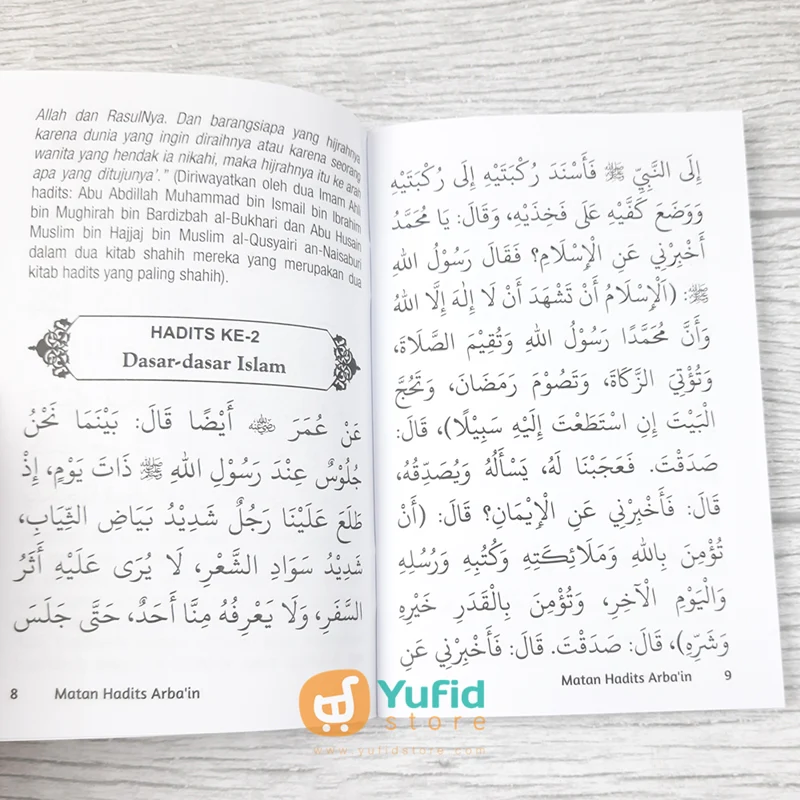 Allah dan RasulNya. Dan barangsiapa yang hijrahnya
karena dunia yang ingin diraihnya atau karena seorang
wanita yang hendak ia nikahi, maka hijrahnya itu ke arah
apa yang ditujunya'." (Diriwayatkan oleh dua Imam Ahli
hadits: Abu Abdillah Muhammad bin Ismail bin Ibrahim
bin Mughirah bin Bardizbah al-Bukhari dan Abu Husain
Muslim bin Hajjaj bin Muslim al-Qusyairi an-Naisaburi
dalam dua kitab shahih mereka yang merupakan dua
kitab hadits yang paling shahih).
HADITS KE-2
Dasar-dasar Islam
عَنْ عُمَرَ ﷺ أَيْضًا قَالَ: بَيْنَمَا نَحْنُ
جُلُوْسٌ عِنْدَ رَسُوْلِ اللهِ ﷺ ذَاتَ يَوْمٍ، إِذْ
طَلَعَ عَلَيْنَا رَجُلٌ شَدِيْدُ بَيَاضِ الثِّيَابِ،
شَدِيْدُ سَوَادِ الشَّعْرِ، لَا يُرَى عَلَيْهِ أَثَرُ
السَّفَرِ، وَلَا يَعْرِفُهُ مِنَّا أَحَدٌ، حَتَّى جَلَسَ
8 Matan Hadits Arba'in
إِلَى النَّبِيِّ ﷺ فَأَسْنَدَ رُكْبَتَيْهِ إِلَى رُكْبَتَيْهِ
وَوَضَعَ كَفَّيْهِ عَلَى فَخِذَيْهِ، وَقَالَ: يَا مُحَمَّدُ
أَخْبِرْنِي عَنِ الْإِسْلَامِ؟ فَقَالَ رَسُوْلُ اللهِ
ﷺ: (اَلْإِسْلَامُ أَنْ تَشْهَدَ أَنْ لَا إِلٰهَ إِلَّا اللهُ
وَأَنَّ مُحَمَّدًا رَسُوْلُ اللهِ وَتُقِيْمَ الصَّلَاةَ،
وَتُؤْتِيَ الزَّكَاةَ، وَتَصُوْمَ رَمَضَانَ، وَتَحُجَّ
الْبَيْتَ إِنِ اسْتَطَعْتَ إِلَيْهِ سَبِيْلًا)، قَالَ:
صَدَقْتَ. فَعَجِبْنَا لَهُ، يَسْأَلُهُ وَيُصَدِّقُهُ،
قَالَ: فَأَخْبِرْنِي عَنِ الْإِيْمَانِ؟ قَالَ: (أَنْ
تُؤْمِنَ بِاللهِ وَمَلَائِكَتِهِ وَكُتُبِهِ وَرُسُلِهِ
وَالْيَوْمِ الْآخِرِ، وَتُؤْمِنَ بِالْقَدَرِ خَيْرِهِ
وَشَرِّهِ)، قَالَ: صَدَقْتَ. قَالَ: فَأَخْبِرْنِي عَنِ
Matan Hadits Arba'in 9
Yufid
store
www.yufidstore.com